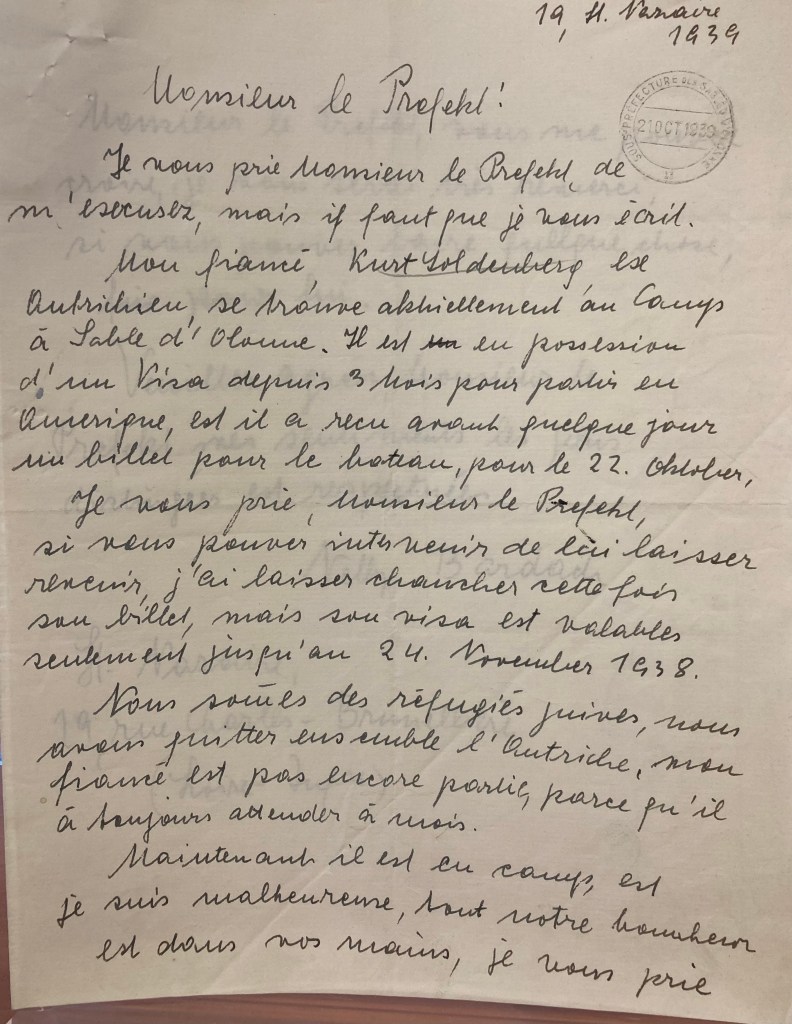 19, St. Nazaire
1939
SOUS-PRÉFECTURE DES SABLES D'OLONNE
21 OCT 1939
Monsieur le Prefekt!
Je vous prie Monsieur le Prefekt, de
m'esecusez, mais if faut que je vous écril.
Mon fiancé, Kurt Goldenberg ese
Autrichien, se trouve aktuellement au Camp
à Sable d'Olonne. Il est en possession
d'un Visa depuis 3 Mois pour partir en
Amerique, est il a recu avant quelque jour
un billet pour le bateau, pour le 22. Oktober,
Je vous prie, Monsieur le Prefekt,
si vous pouver intervenir de lui laisser
revenir, j'ai laisser chancher cette fois
son billet, mais son visa est valables
seulement jusqu'au 24. November 1938.
Nous somes des réfugiés juives, nous
avons quitter ensemble l'Autriche, mon
fiancé est pas encore partie, parce qu'il
à toujours attender à mois.
Maintenant il est en camp, est
je suis malheureuse, tout notre bonheur
est dans vos mains, je vous prie